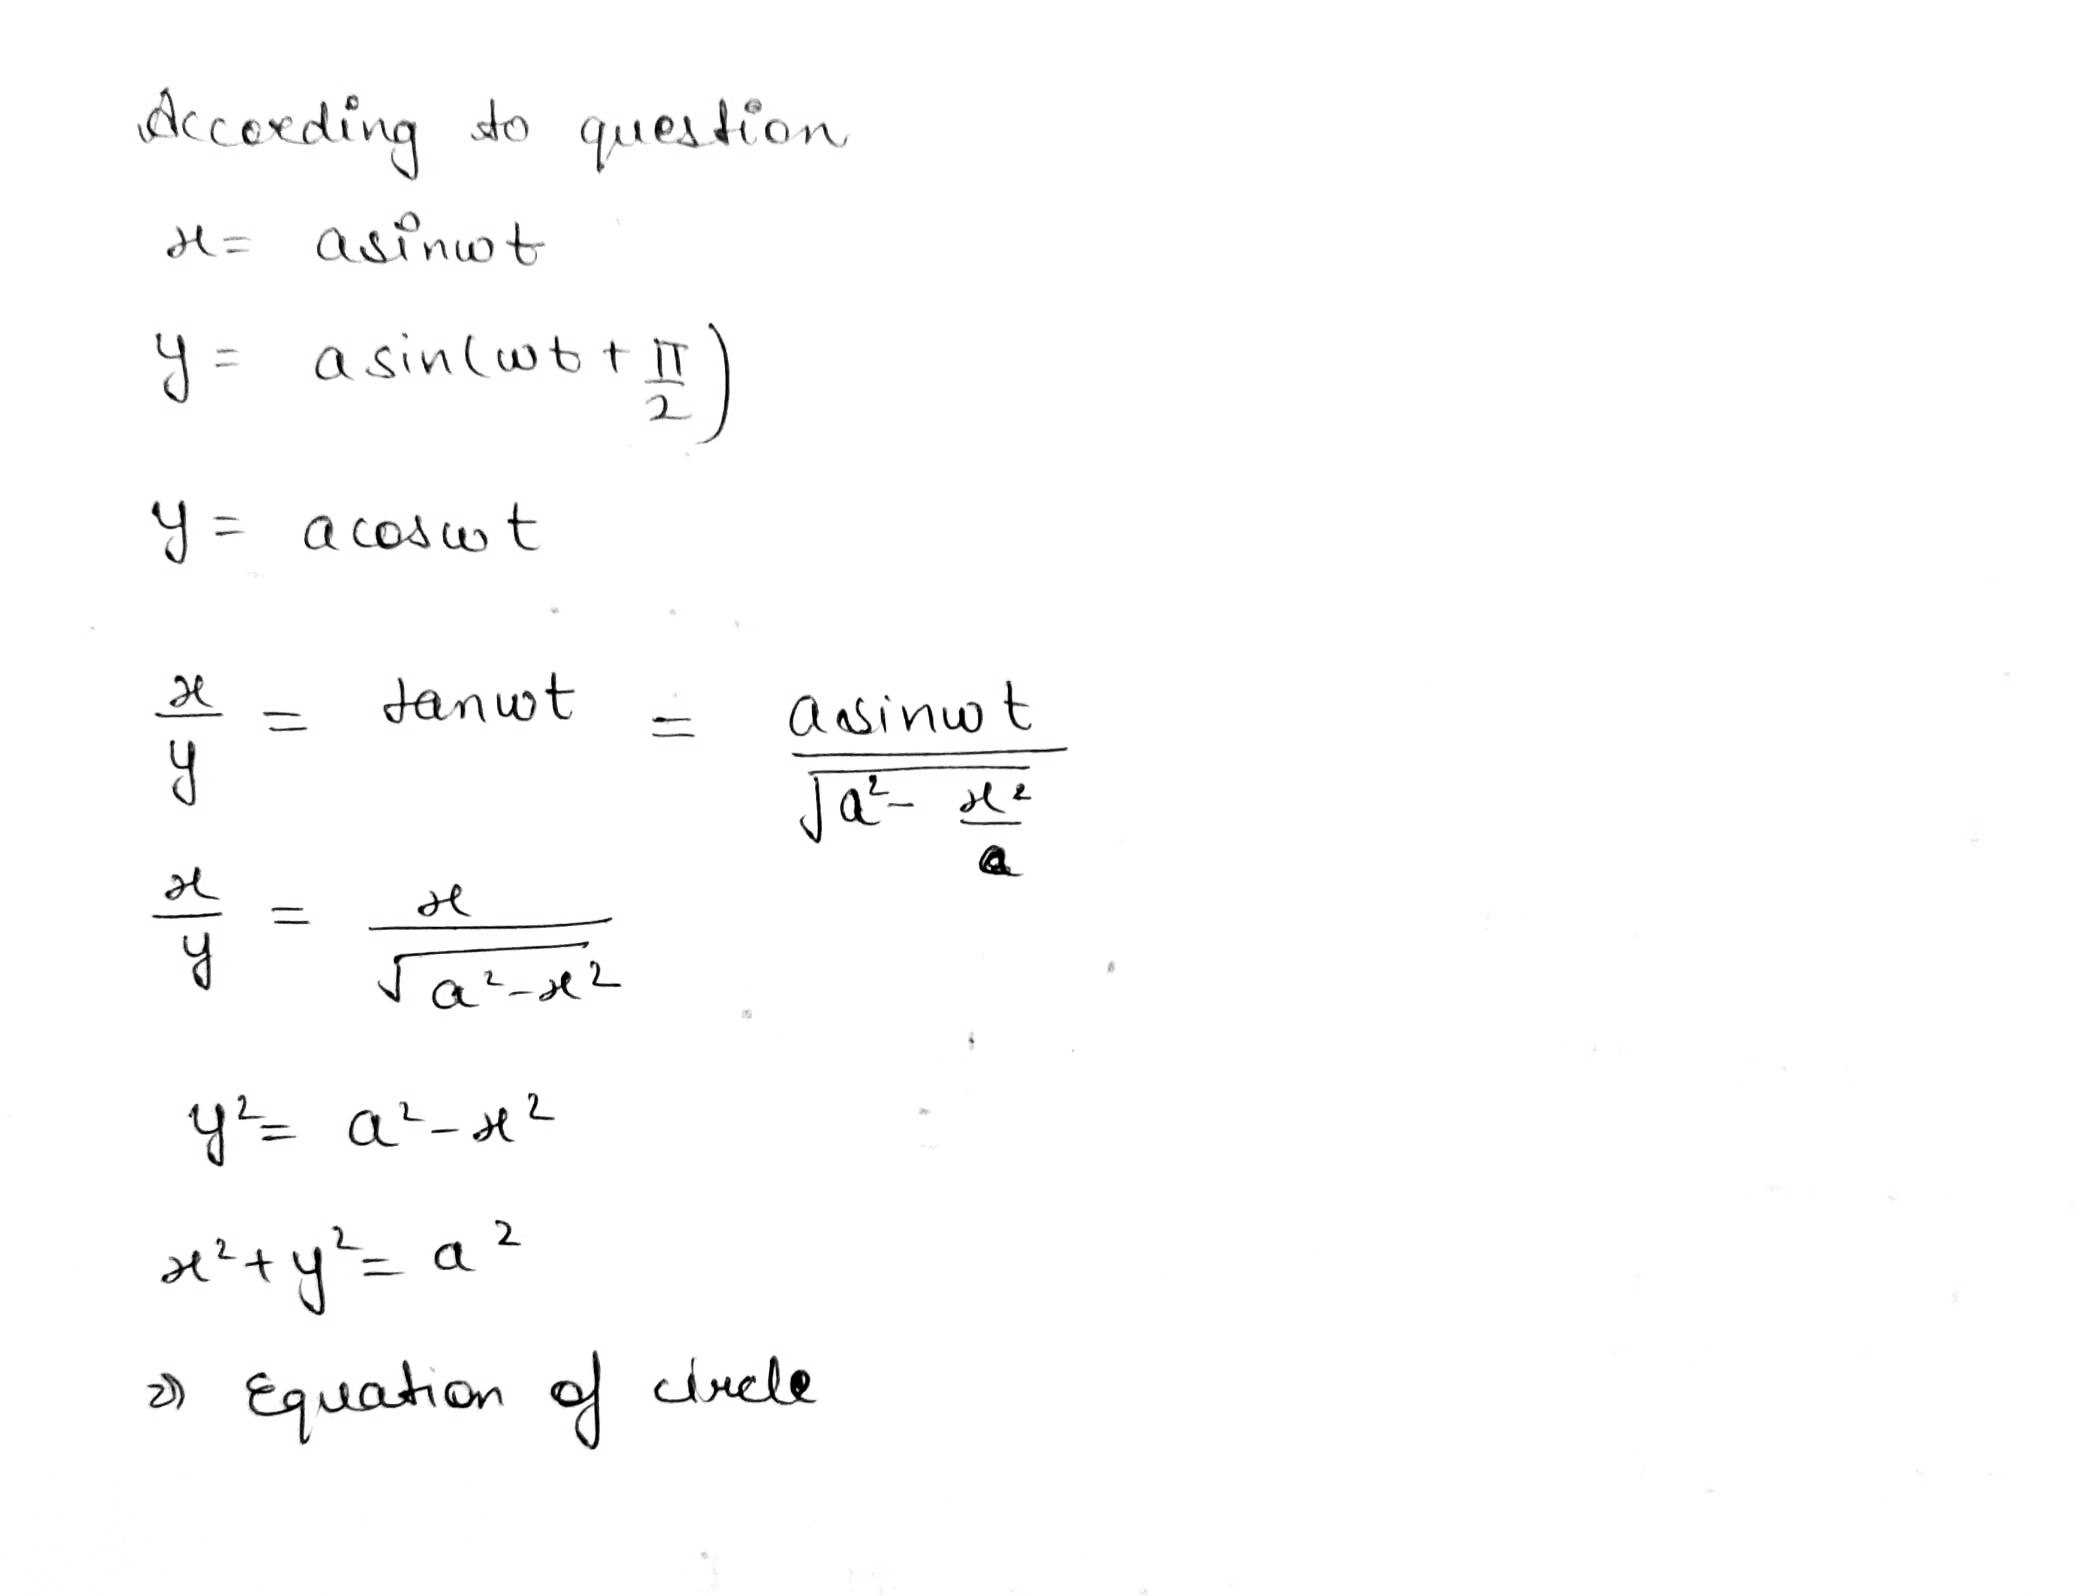 According to question
x = a sinωt
y = a sin(ωt + π/2)
y = a cosωt
x/y = tanωt = a sinωt / √(a² - x²/a)
x/y = x / √(a² - x²)
y² = a² - x²
x² + y² = a²
⇒ Equation of circle